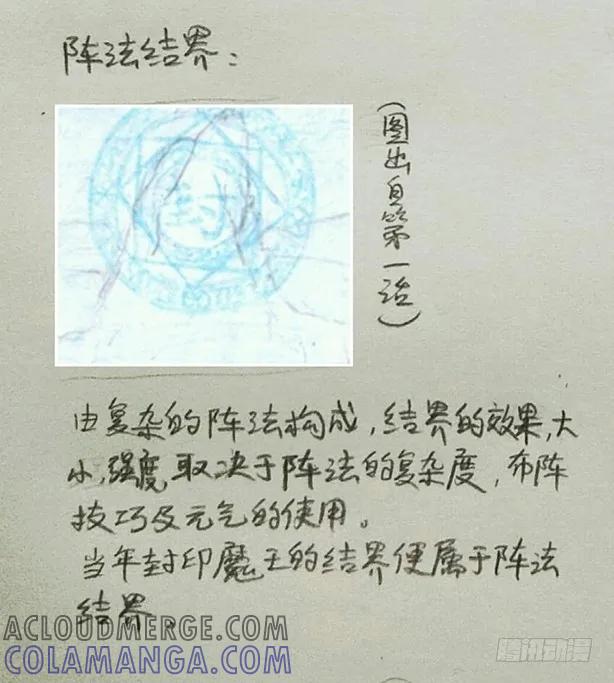 阵法结界：
封
（图出自第一话）
由复杂的阵法构成，结界的效果，大
小，强度，取决于阵法的复杂度，布阵
技巧及元气的使用。
当年封印魔王的结界便属于阵法
结界。
ACLOUDMERGE.COM
COLAMANGA.COM
腾讯动漫